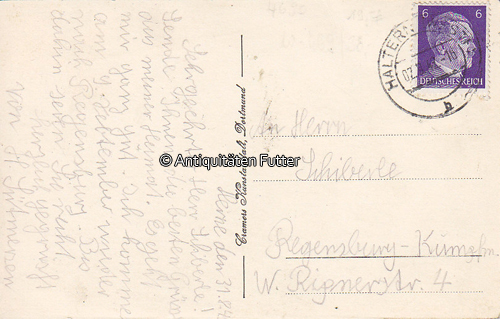 Herne den 31.8.42
Sehr geehrter Herr Schiberle!
Sende Ihnen die besten Grüße
aus meiner Heimat. Es geht
mir ganz gut. Ich komme
am 9. September wieder
nach Regensburg. Bis
dahin seid
herzlich gegrüßt
von
An Herrn
Schiberle
Regensburg-Kumpfm.
W. Rignerstr. 4
Cramers Kunstanstalt, Dortmund
6 6
DEUTSCHES REICH
HALTERN
© Antiquitäten Futter